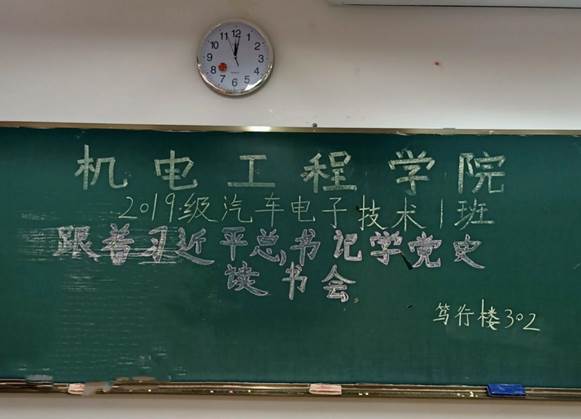 12
1
2
3
4
5
6
7
8
9
10
11
机电工程学院
2019级汽车电子技术1班
跟着习近平总书记学党史
读书会
笃行楼302